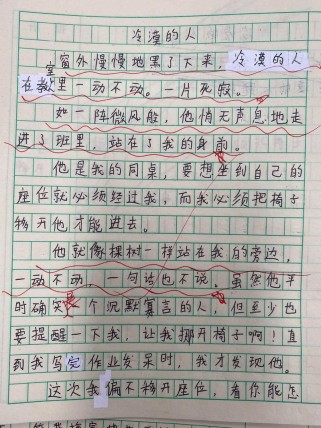 冷漠的人
窗外慢慢地黑了下来，冷漠的人
在教室里一动不动。一片死寂。
如一阵微风般，他悄无声息地走
进了班里，站在了我的身前。
他是我的同桌，要想坐到自己的
座位就必须经过我，而我必须把椅子
挪开他才能进去。
他就像棵树一样站在我的旁边，
一动不动，一句话也不说。虽然他平
时确实是个沉默寡言的人，但至少也
要提醒一下我，让我挪开椅子啊！直
到我写完作业发呆时，我才发现他。
这次我偏不挪开座位，看你能怎